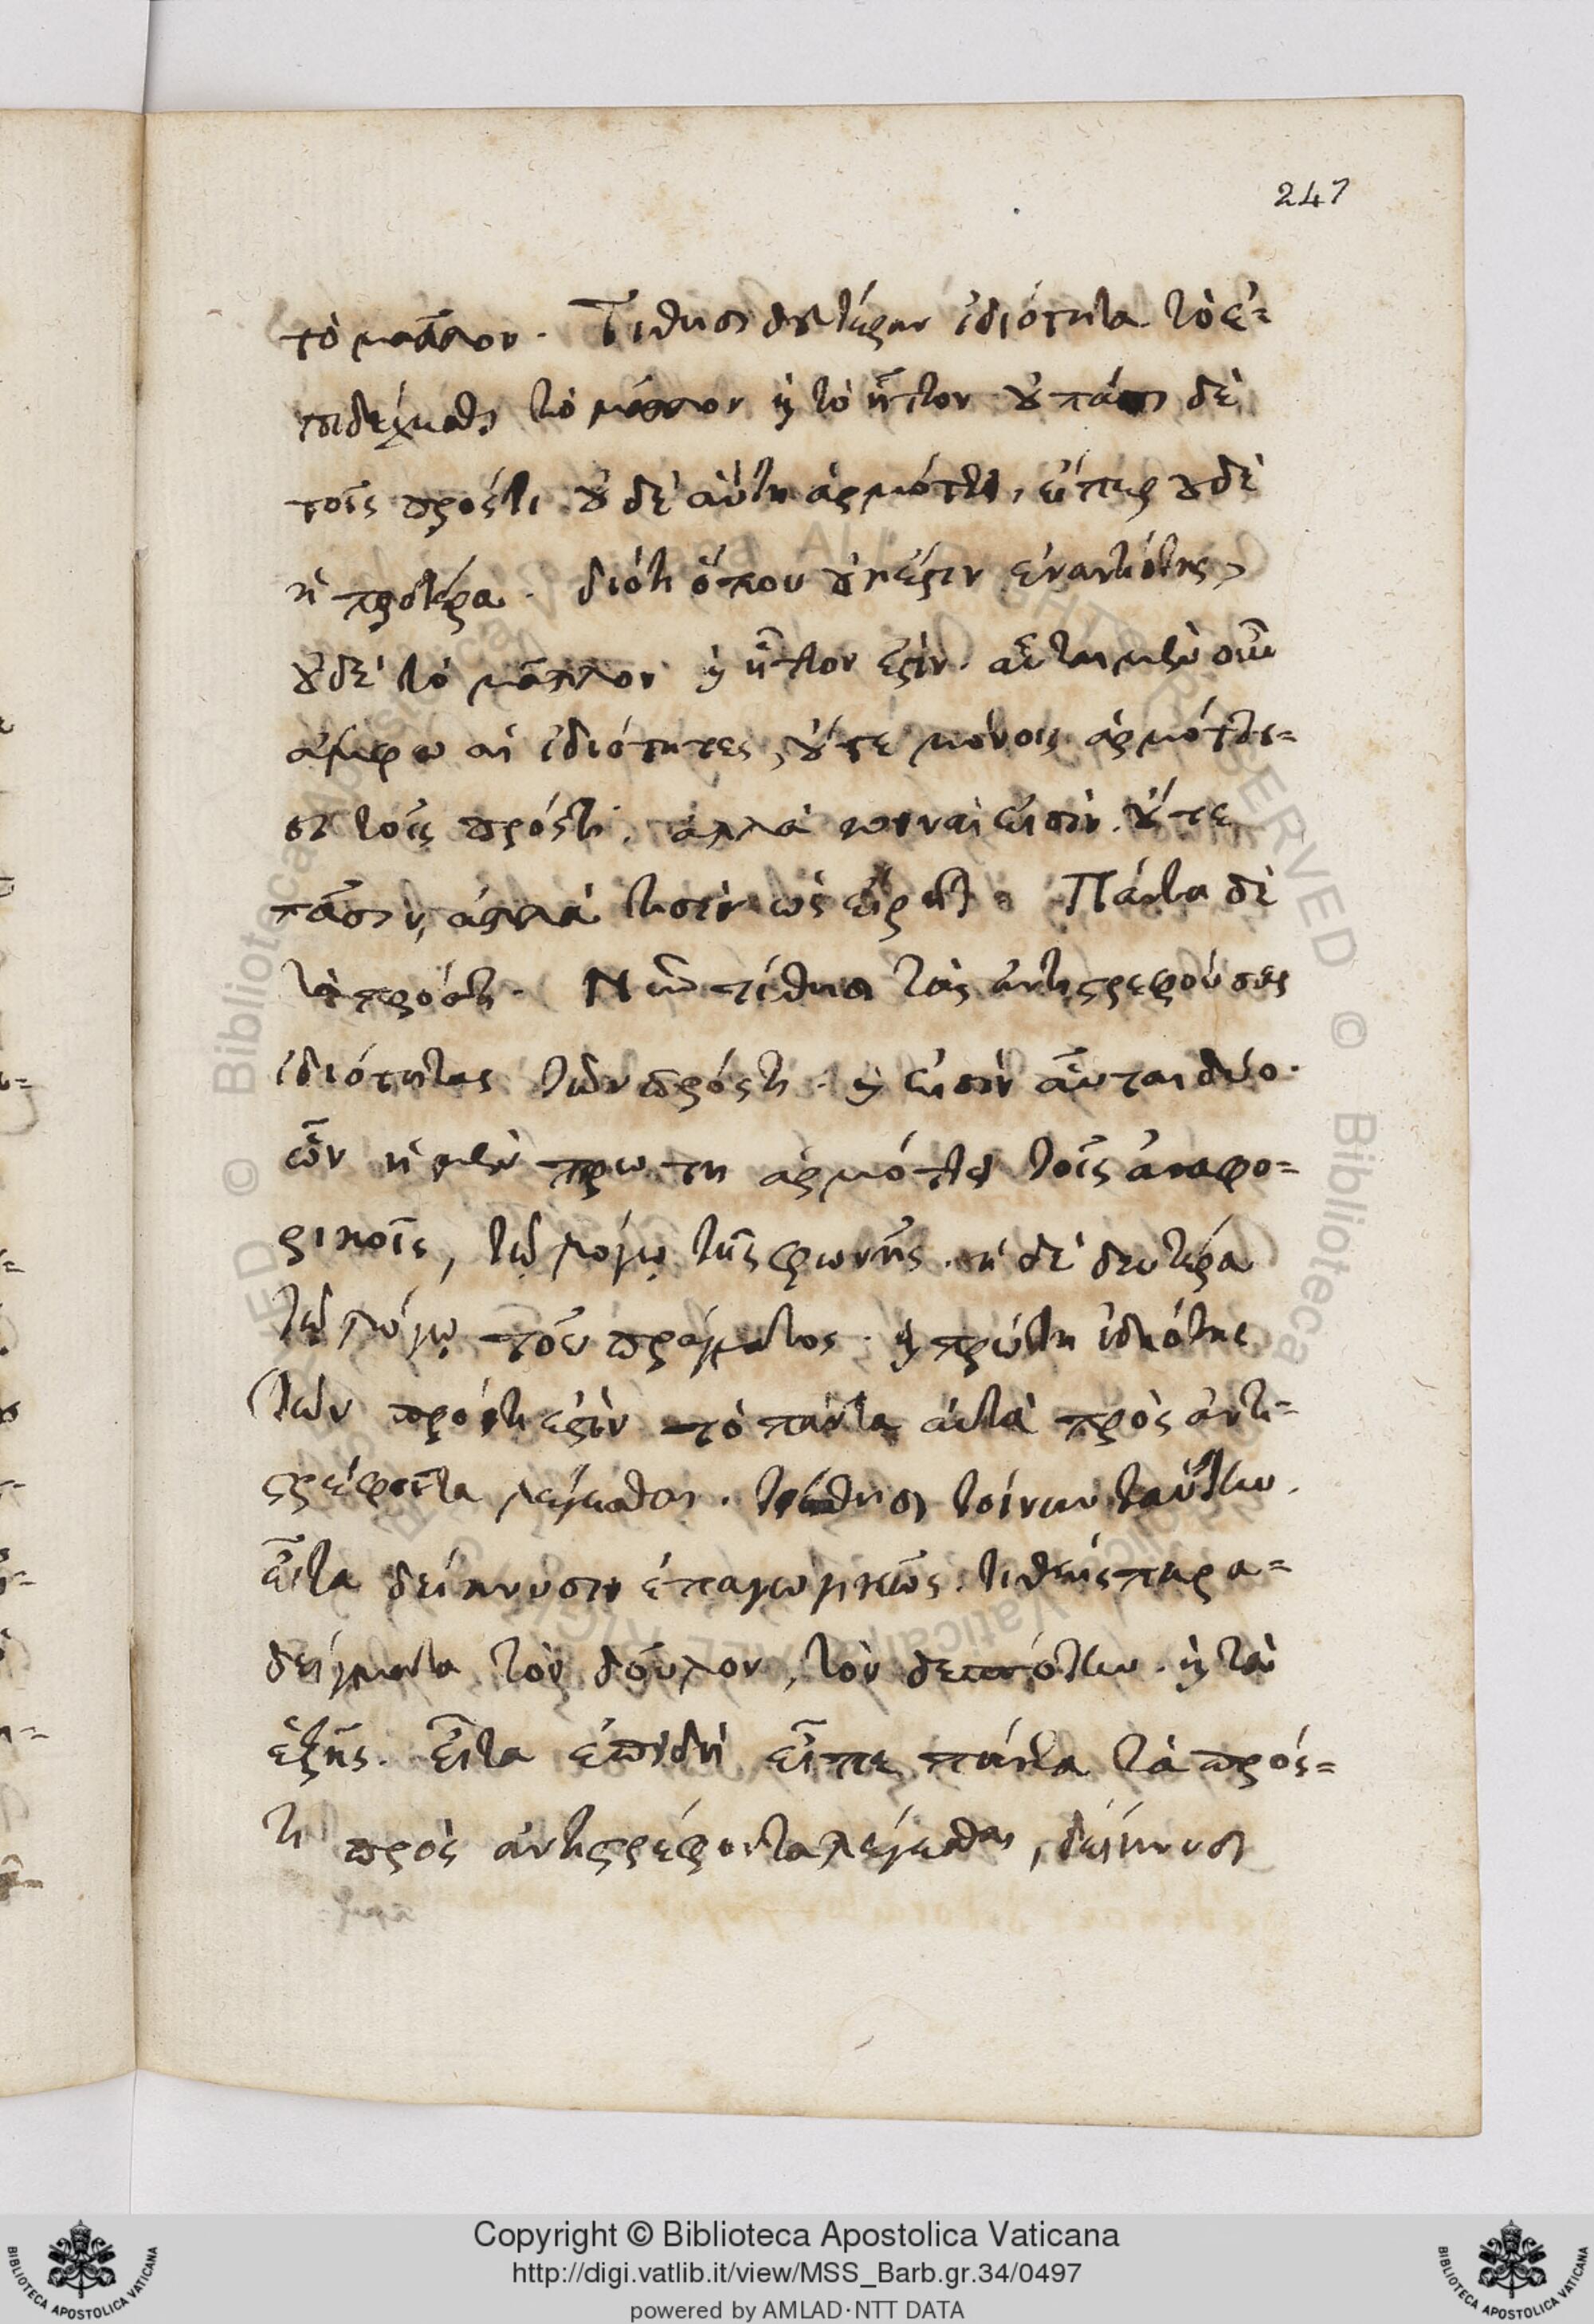 247
τὸ μᾶλλον. Τίθησι δευτέραν ἰδιότητα τὸ ἐ=
πιδέχεσθαι τὸ μᾶλλον ἢ τὸ ἧττον οὐ πᾶσι δὲ
τοῖς πρόςτι οὐδὲ αὕτη ἁρμόττει, εἴπερ οὐδὲ
ἡ προτέρα. διότι ὅπου οὐκ ἔστιν ἐναντιότης,
οὐδὲ τὸ μᾶλλον ἢ ἧττον ἐστίν. αὗται μὲν οὖν
ἄμφω αἱ ἰδιότητες, οὔτε μόνοις ἁρμόττου=
σι τοῖς πρόςτι. ἀλλὰ κοιναὶ εἰσίν. οὔτε
πᾶσιν, ἀλλὰ τισὶν ὡς εἴρηται. Πάντα δὲ
τὰ πρόςτι. Νῦν τίθησι τὰς ἀντιστρεφούσας
ἰδιότητας τῶν πρόςτι. καὶ εἰσὶν αὗται δύο.
ὧν ἡ μὲν πρώτη ἁρμόττει τοῖς ἀναφο=
ρικοῖς, τῷ λόγῳ τῆς φωνῆς. ἡ δὲ δευτέρα
τῷ λόγῳ τοῦ πράγματος. ἡ πρώτη ἰδιότης
τῶν πρόςτι ἐστὶν τὸ πάντα αὐτὰ πρὸς ἀντι=
στρέφοντα λέγεσθαι. τίθησι τοίνυν ταύτην.
εἶτα δείκνυσιν ἐπαγωγικῶς. τιθεὶς παρα=
δείγματα τὸν δοῦλον, τὸν δεσπότην. καὶ τὰ
ἑξῆς. Εἶτα ἐπειδὴ εἶπε πάντα τὰ πρός=
τι πρὸς ἀντιστρέφοντα λέγεσθαι, δείκνυσι
Copyright © Biblioteca Apostolica Vaticana
http://digi.vatlib.it/view/MSS_Barb.gr.34/0497
powered by AMLAD·NTT DATA